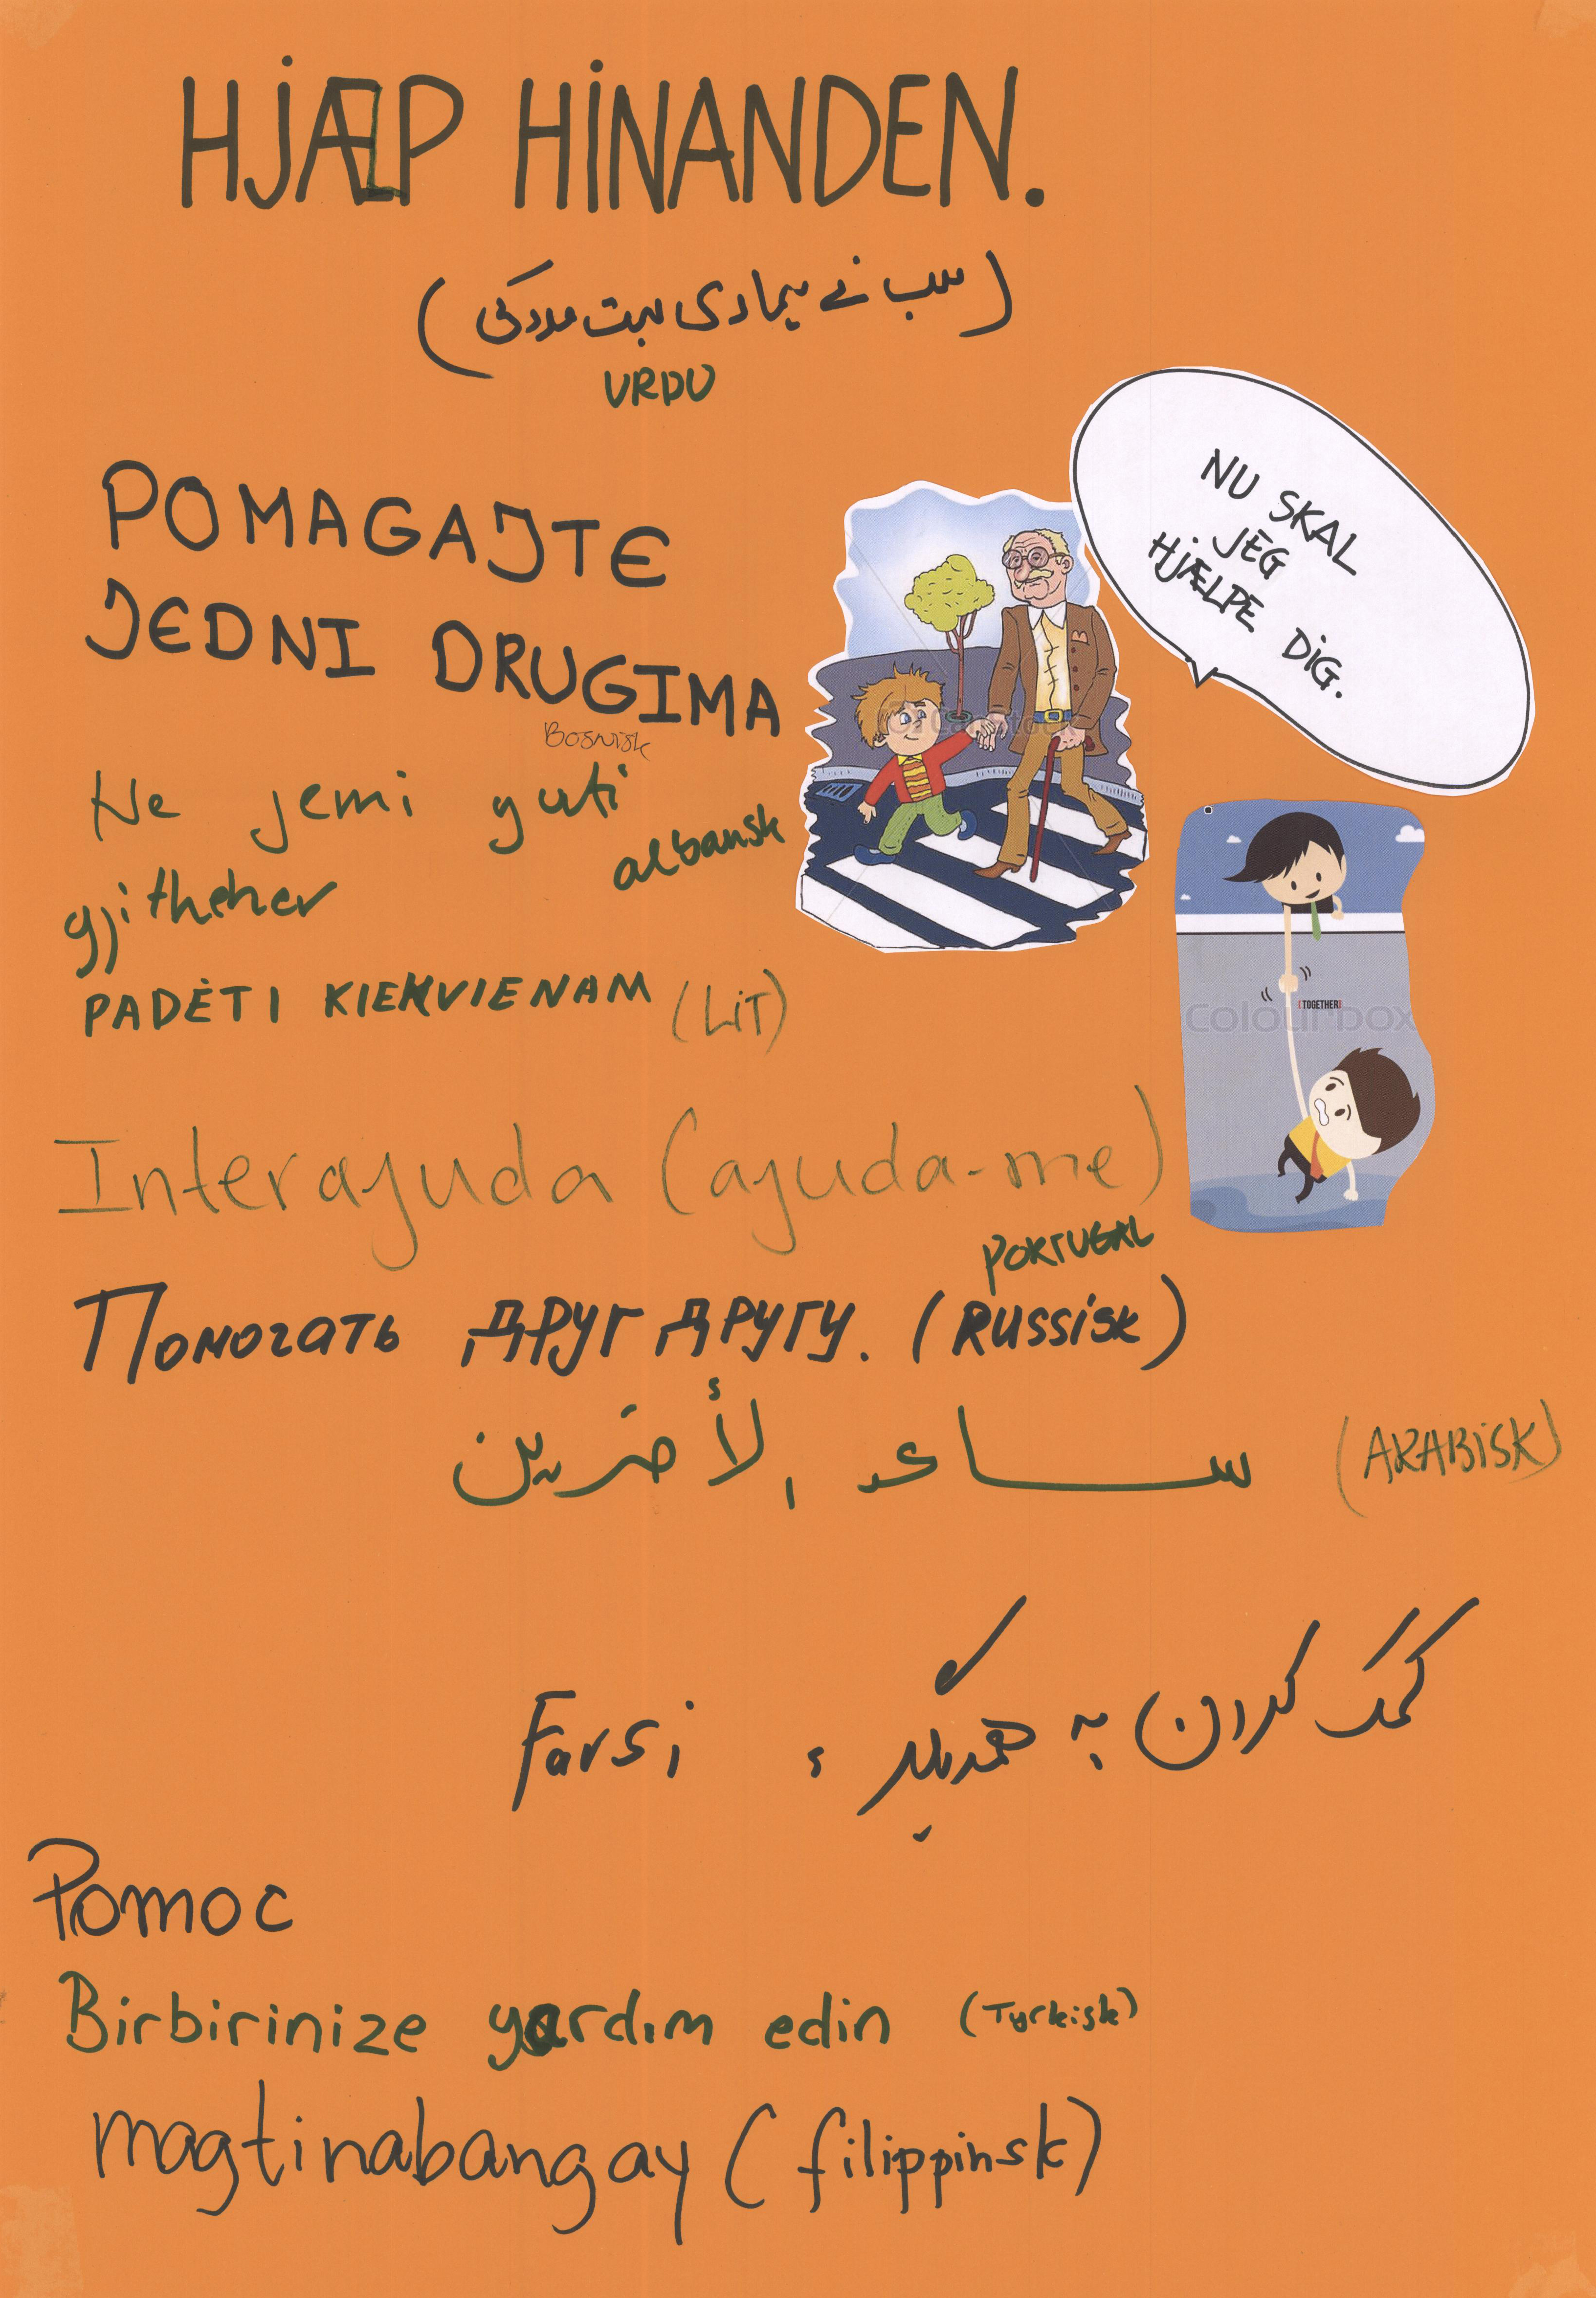 HJÆLP HINANDEN.
(سب نے ہماری بہت مدد کی)
URDU
POMAGAJTE
JEDNI DRUGIMA
Bosnisk
NU SKAL
JEG
HJÆLPE DIG.
Ne jemi guti
albansk
gjitheher
PADĖTI KIEKVIENAM (LIT)
(TOGETHER)
Colourbox
Interajuda (ajuda-me)
PORTUGAL
Помогать друг другу. (RUSSISK)
ساعد الأخرين (ARABISK)
کمک کردن به همدیگر، Farsi
Pomoc
Birbirinize yardım edin (Tyrkisk)
magtinabangay (filippinsk)